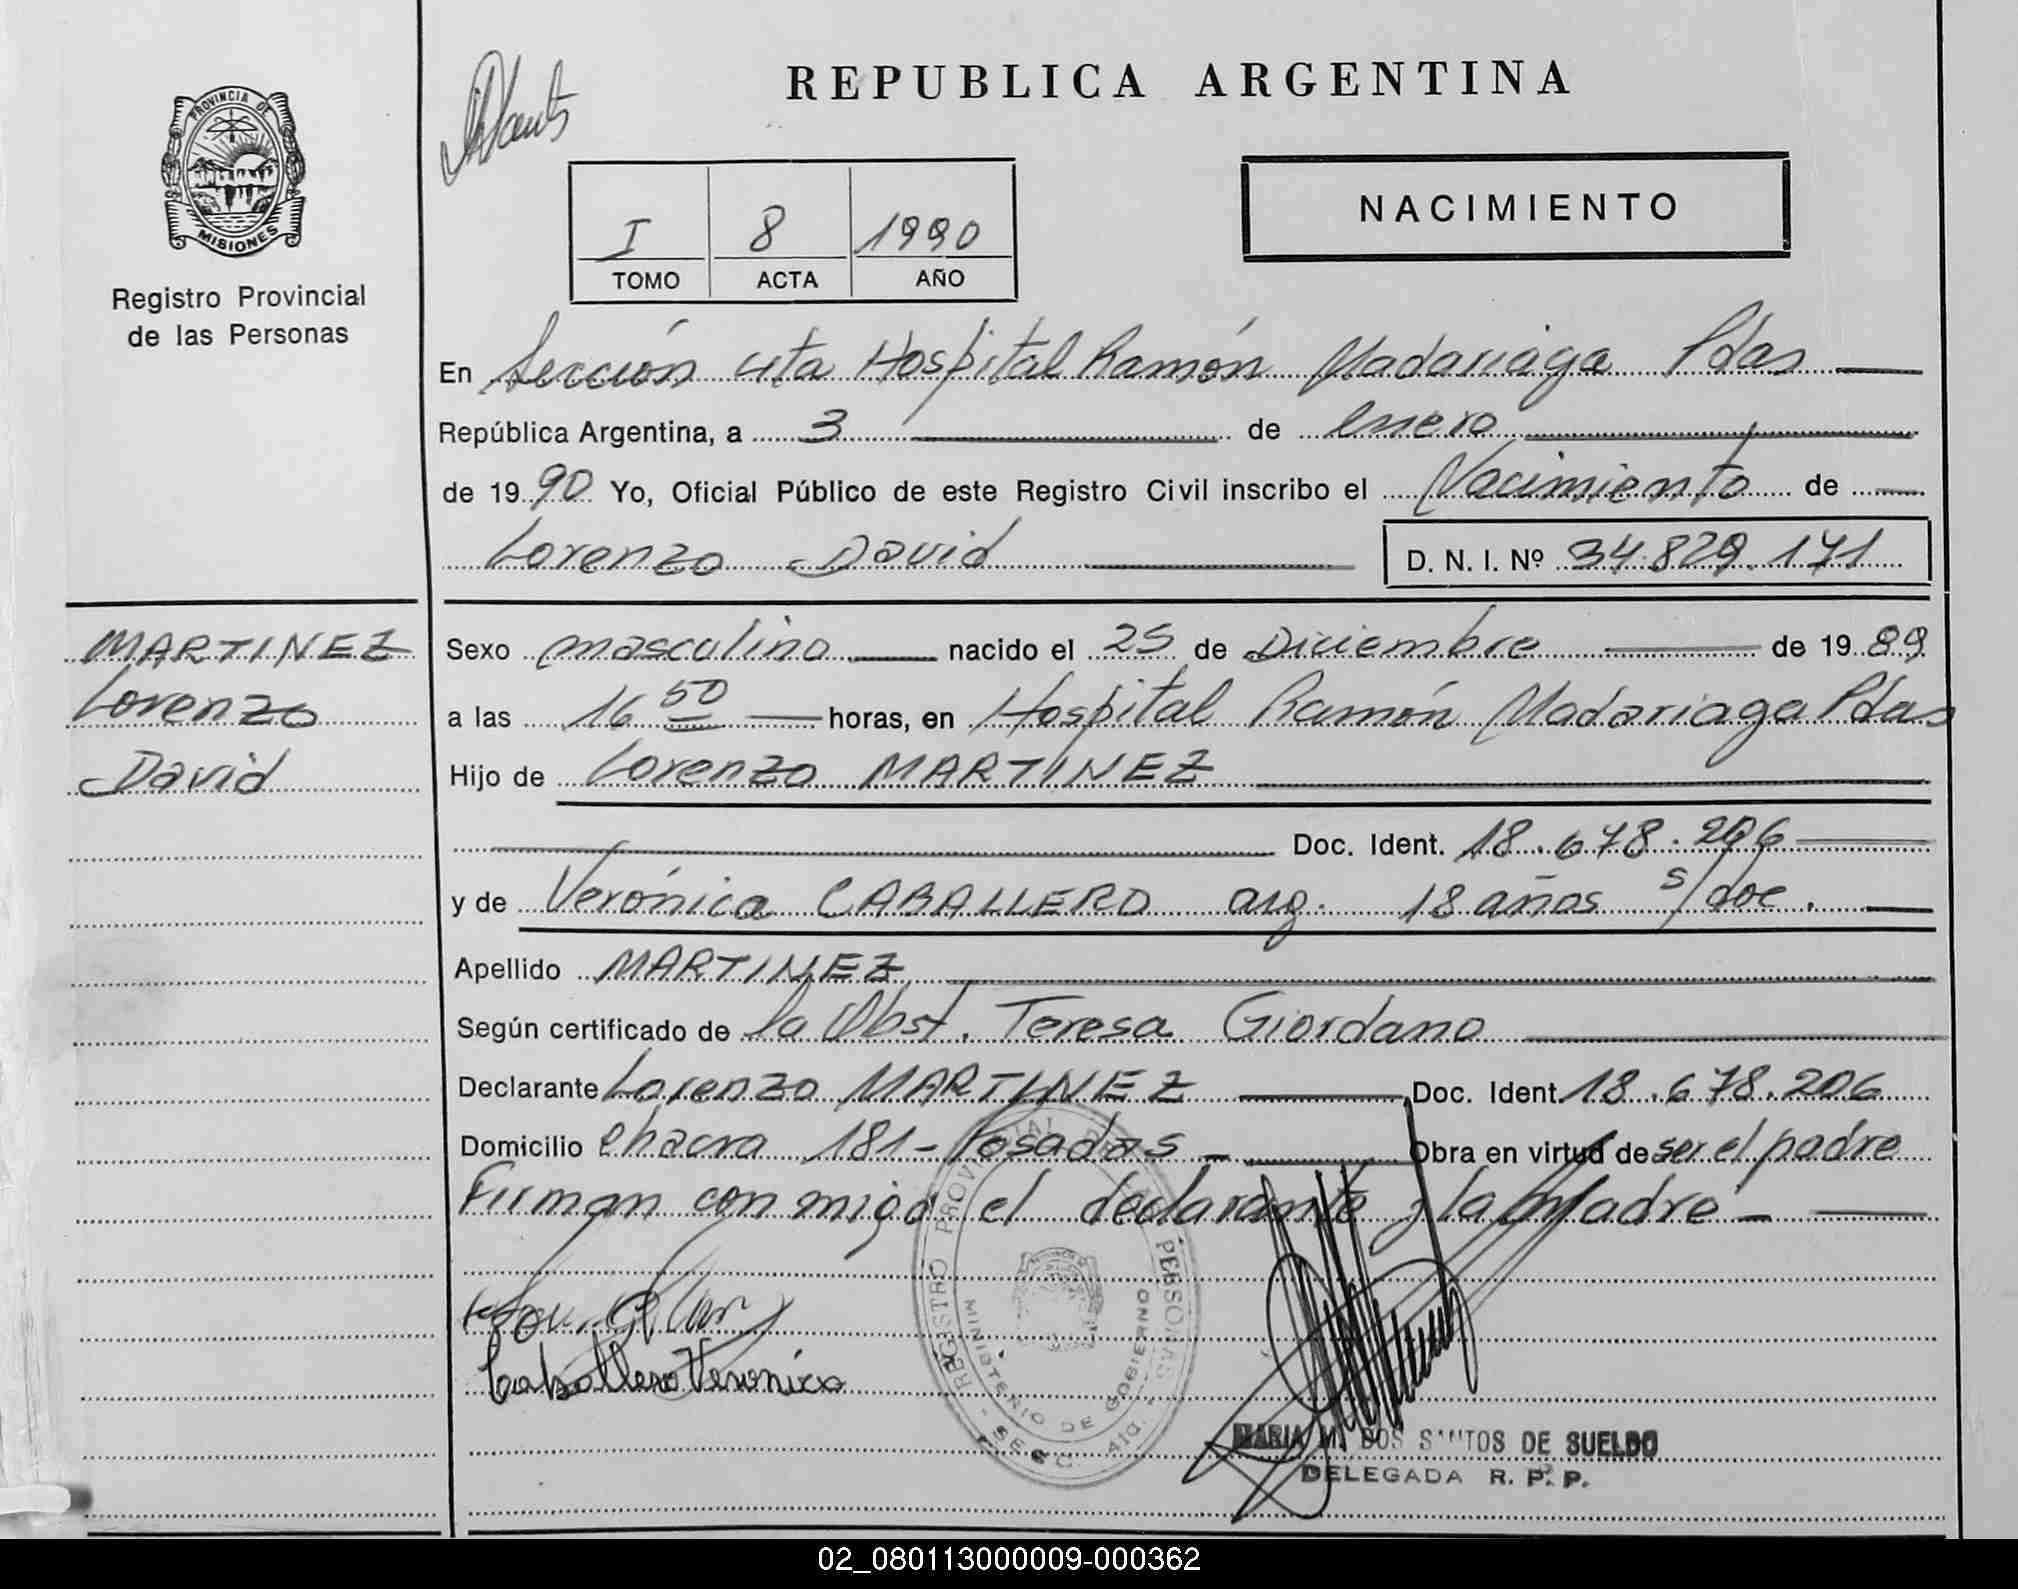 REPUBLICA ARGENTINA
PROVINCIA DE
MISIONES
Registro Provincial
de las Personas
NACIMIENTO
I 8 1990
TOMO ACTA AÑO
En Sección 4ta Hospital Ramón Madariaga Pdas
República Argentina, a 3 de enero
de 1990 Yo, Oficial Público de este Registro Civil inscribo el Nacimiento de
Lorenzo David D. N. I. Nº 34.829.171
MARTINEZ
Lorenzo
David
Sexo masculino nacido el 25 de Diciembre de 1989
a las 16 50 horas, en Hospital Ramón Madariaga Pdas
Hijo de Lorenzo MARTINEZ
Doc. Ident. 18.678.206
y de Verónica CABALLERO arg. 18 años s/doc.
Apellido MARTINEZ
Según certificado de la Obst. Teresa Giordano
Declarante Lorenzo MARTINEZ Doc. Ident. 18.678.206
Domicilio chacra 181 - Posadas - Obra en virtud de ser el padre
Firman conmigo el declarante y la Madre -
Caballero Veronica
REGISTRO PROVINCIAL DE LAS PERSONAS
MINISTERIO DE GOBIERNO
MARIA M. DOS SANTOS DE SUELDO
DELEGADA R. P. P.
02_080113000009-000362